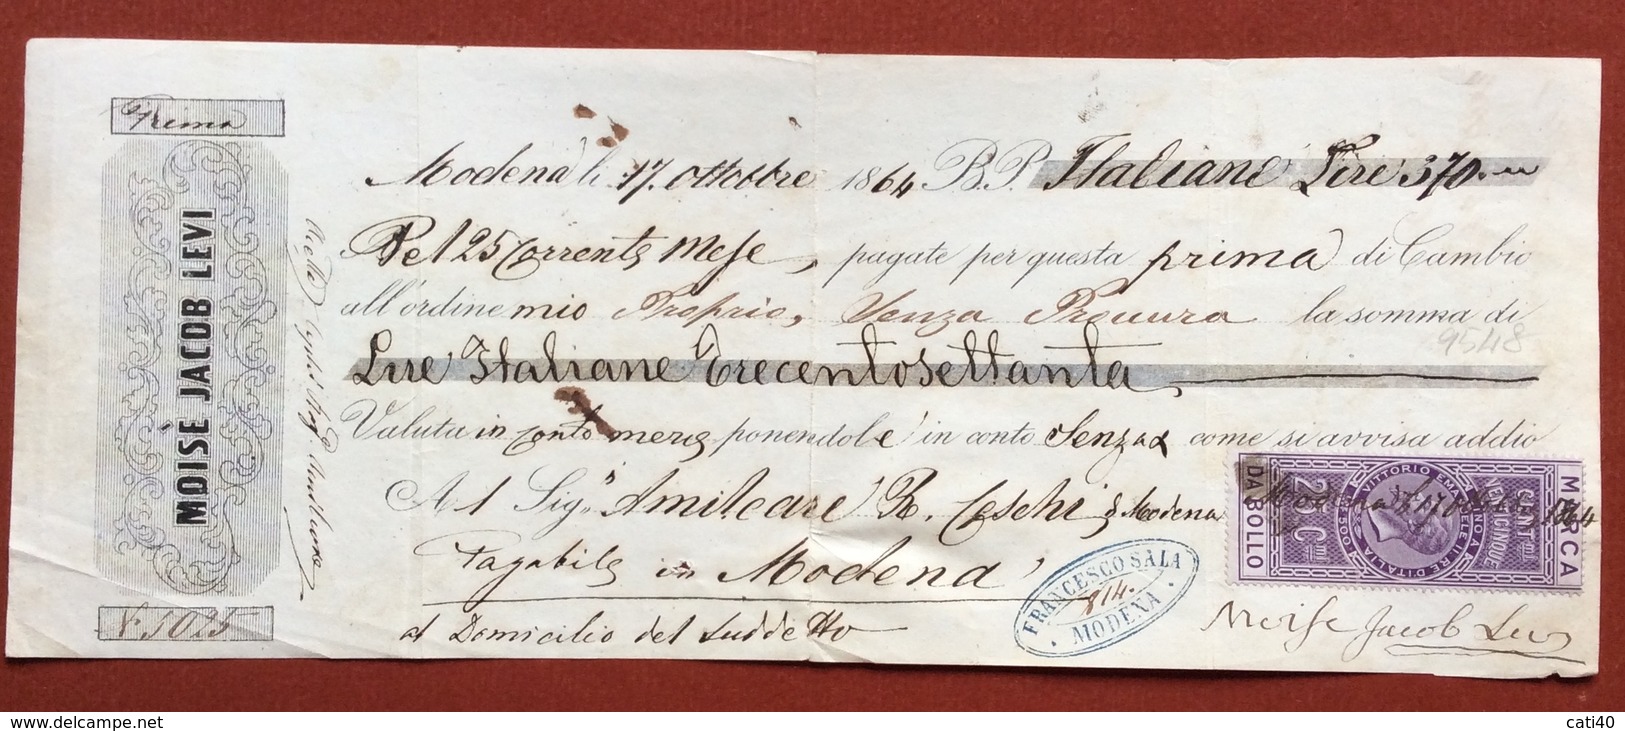 Prima
MOISÈ JACOB LEVI
N. 5025
Modena li 17. Ottobre 1864 B.P. Italiane Lire 370.
Pel 25 Corrente Mese, pagate per questa prima di Cambio
all'ordine mio Proprio, Senza Procura la somma di
9548
Lire Italiane Trecentosettanta,
Valuta in conto merce ponendole in conto Senza come si avvisa addio
Al Sig. Amilcare R. Ceschi di Modena
Pagabile in Modena
al Domicilio del Suddetto
FRANCESCO SALA
814.
MODENA
MARCA
DA BOLLO
CENT.MI VENTICINQUE
VITTORIO EMANUELE II RE D'ITALIA
25 C.MI
Modena li 17 Ottobre 1864
Moise Jacob Levi
cati40